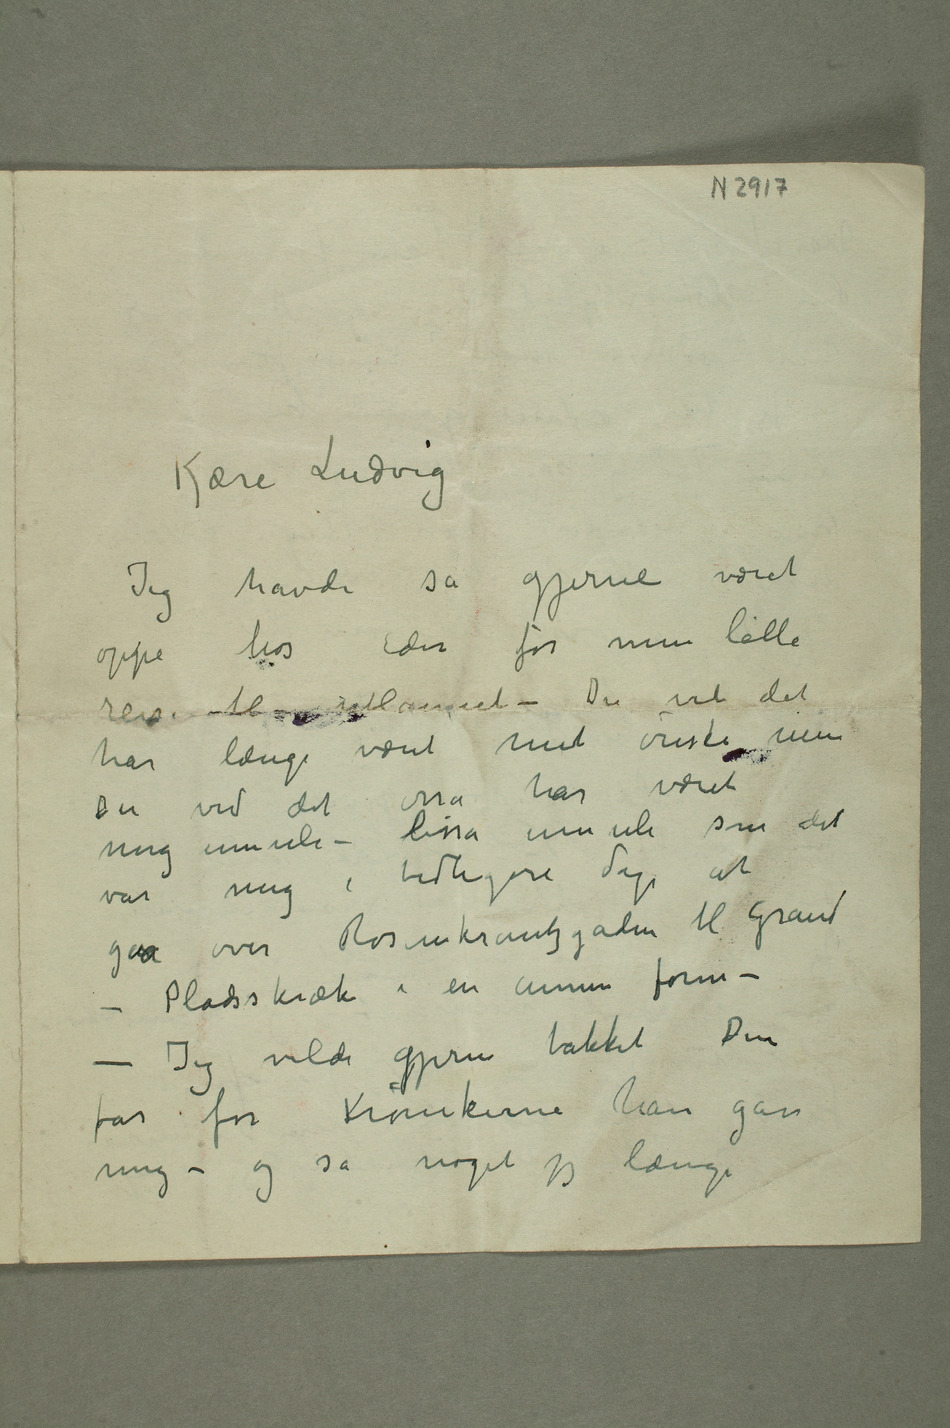 N 2917
Kære Ludvig
Jeg havde så gjerne været
oppe hos eder før min lille
reise til utlannet – Du vet det
har længe været mit ønske men
Du ved det osså har været
mig umuli – lisså umuli som det
var mig i tidligere dage at
gåa over Rosenkrantzgaden til Grand
– Pladsskræk i en annen form –
– Jeg vilde gjerne takket Din
far for Krønikerne han gav
mig – og så noget jeg længe